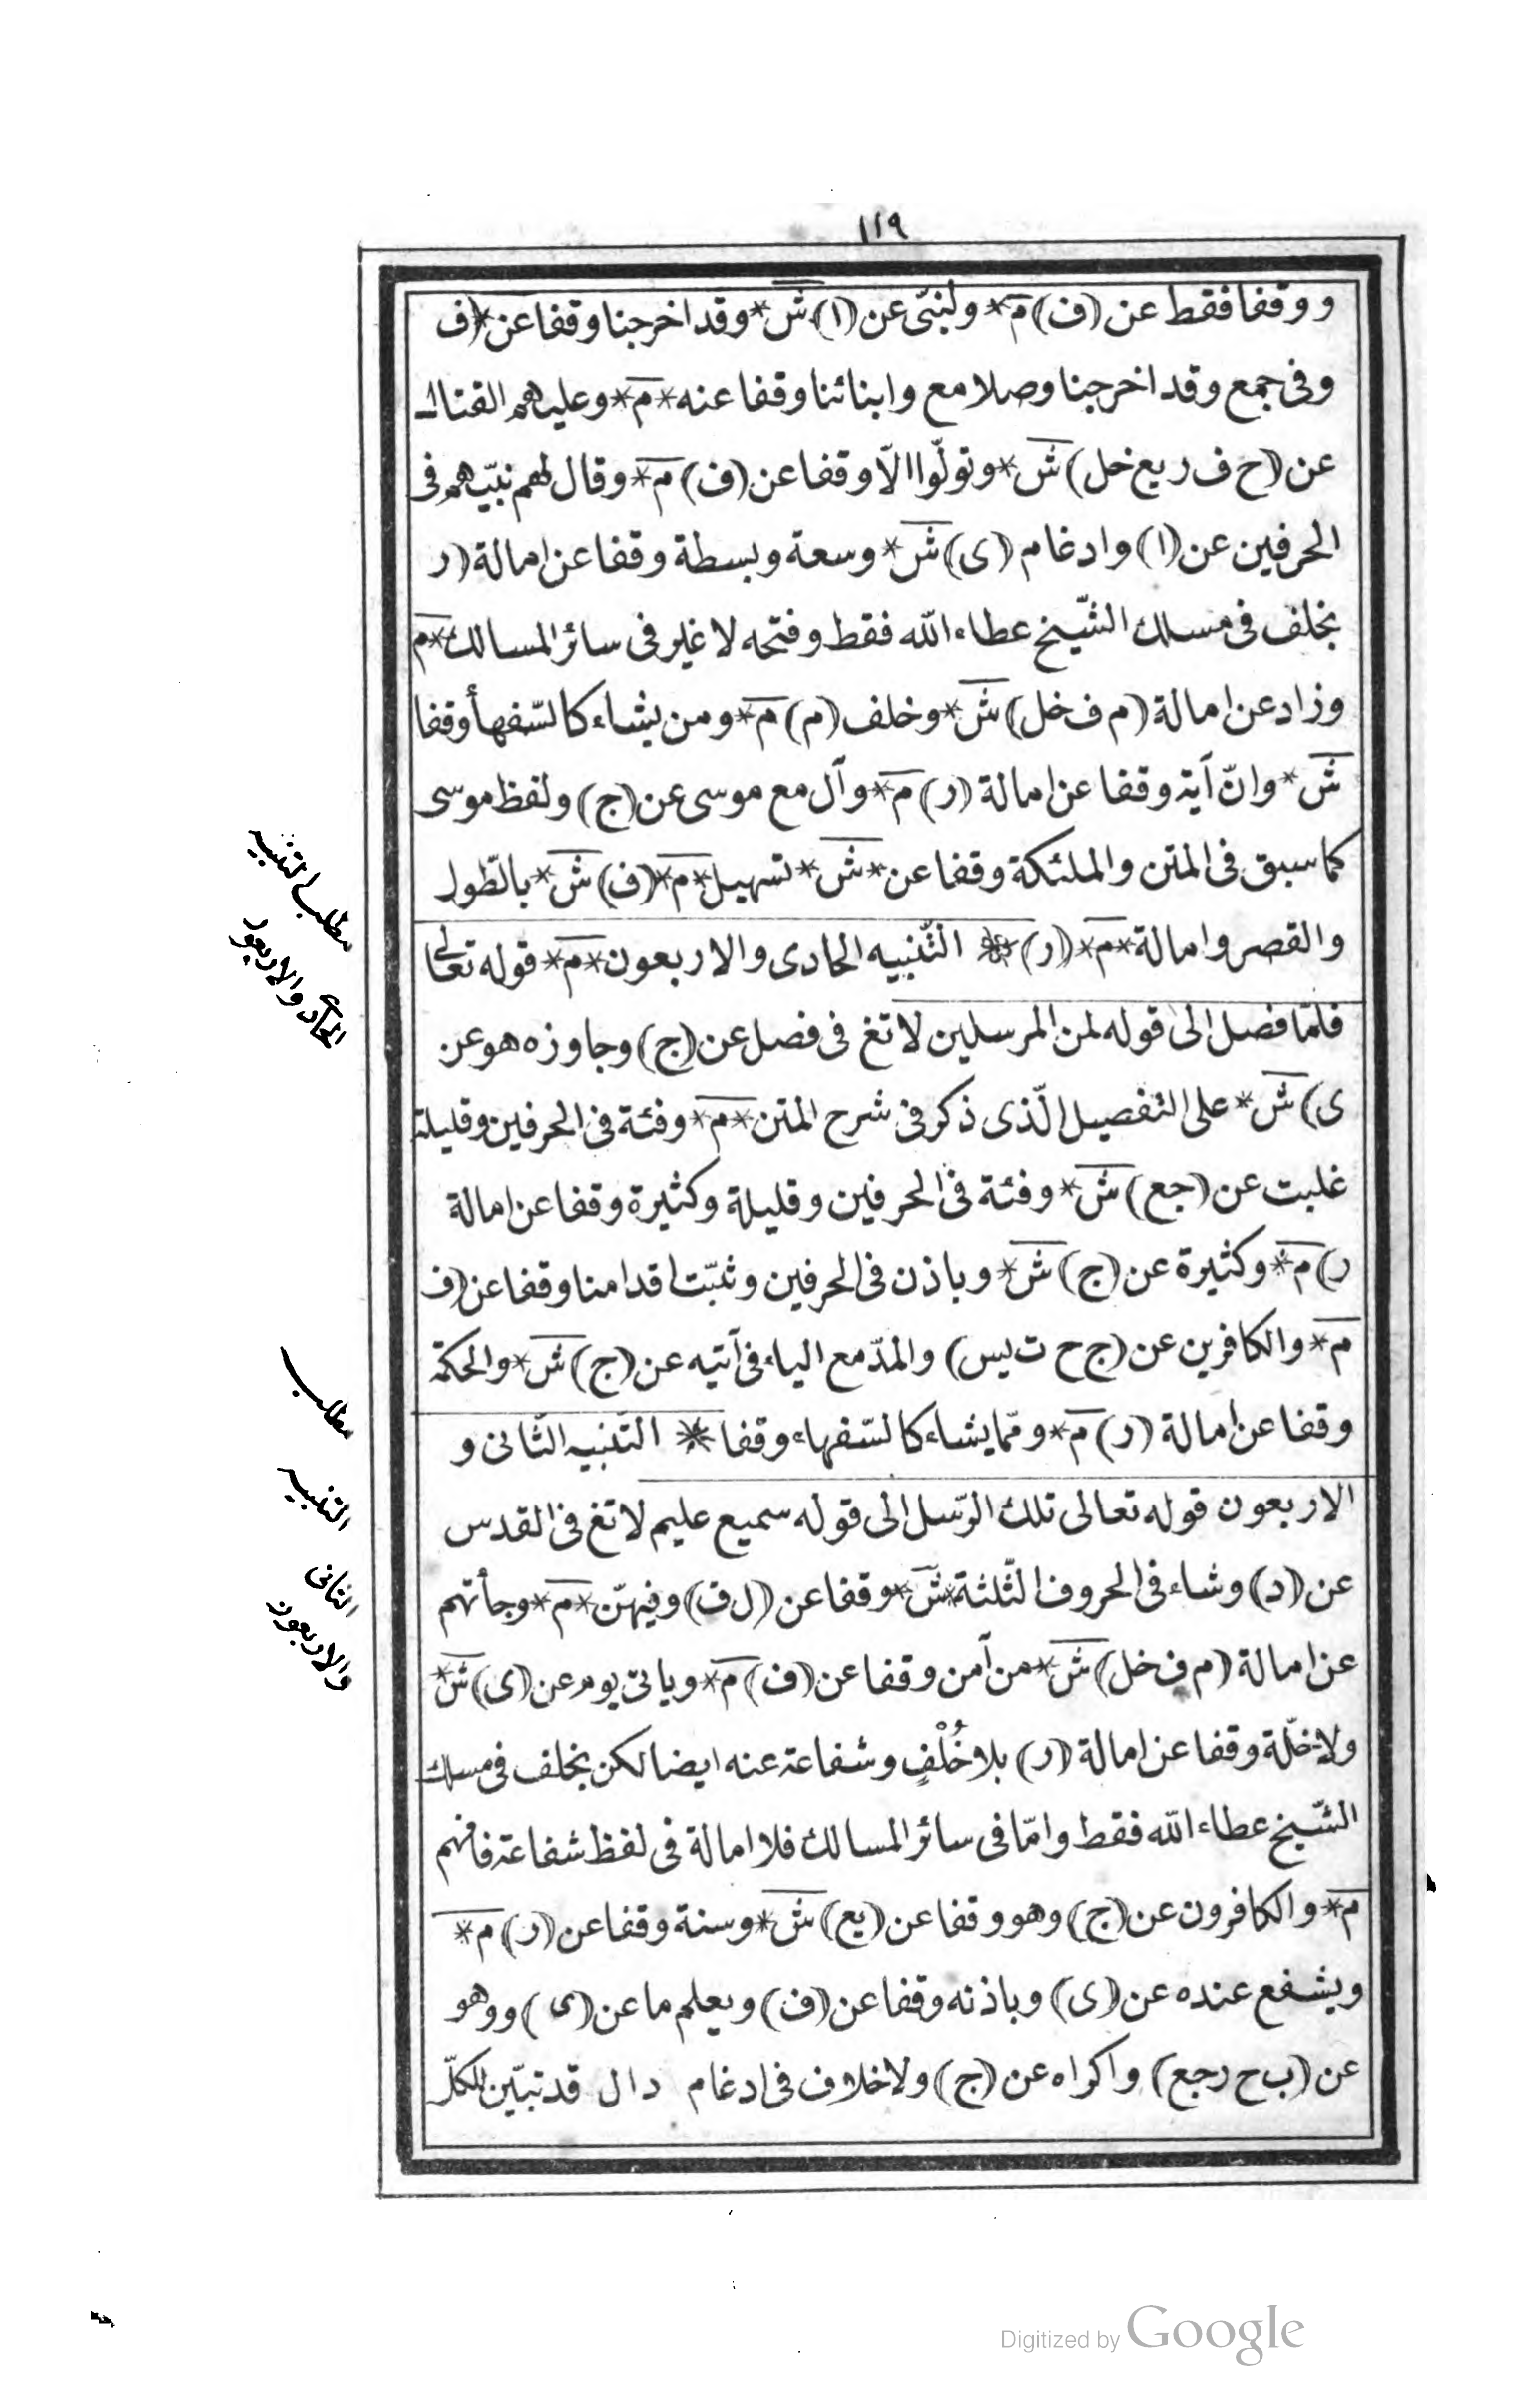 ١١٩
ووقفا فقط عن (ف) م * ولنبىّ عن (ا) ش * وقد اخرجنا وقفا عن * (ف
وفى جمع وقد اخرجنا وصلا مع وابنائنا وقفا عنه * م * وعليهم القتال
عن (ح ف ر يع خل) ش * وتولّوا الاّ وقفا عن (ف) م * وقال لهم نبيّهم فى
الحرفين عن (ا) وادغام (ى) ش * وسعة وبسطة وقفا عن امالة (ر
بخلف فى مسلك الشّيخ عطاء اللّه فقط وفتحه لا غير فى سائر المسالك * م
وزاد عن امالة (م ف خل) ش * وخلف (م) م * ومن يشاء كالسّفهاء وقفا
ش * وانّ آية وقفا عن امالة (ر) م * وآل مع موسى عن (ج) ولفظ موسى
كما سبق فى المتن والملئكة وقفا عن * ش * تسهيل * م * (ف) ش * بالطّول
والقصر وامالة * م * (ر) * التّنبيه الحادى والاربعون * م * قوله تعالى
فلمّا فصل الى قوله لمن المرسلين لا تغ فى فصل عن (ج) وجاوزه هو عن
ى) ش * على التفصيل الّذى ذكر فى شرح المتن * م * وفئة فى الحرفين وقليلة
غلبت عن (جع) ش * وفئة فى الحرفين وقليلة وكثيرة وقفا عن امالة
ر) م * وكثيرة عن (ج) ش * وباذن فى الحرفين وثبّت اقدامنا وقفا عن (ف
م * والكافرين عن (ج ح ت يس) والمدّ مع الياء فى آتيه عن (ج) ش * والحكمة
وقفا عن امالة (ر) م * وممّا يشاء كالسّفهاء وقفا * التّنبيه الثّانى و
الاربعون قوله تعالى تلك الرّسل الى قوله سميع عليم لا تغ فى القدس
عن (د) وشاء فى الحروف الثّلثة * ش * وقفا عن (ل ف) وفيهنّ * م * وجأتهم
عن امالة (م ف خل) ش * من آمن وقفا عن (ف) م * وياتى يوم عن (ى) ش *
ولا خلّة وقفا عن امالة (ر) بلا خُلْفٍ وشفاعة عنه ايضا لكن بخلف فى مسلك
الشّيخ عطاء اللّه فقط وامّا فى سائر المسالك فلا امالة فى لفظ شفاعة فافهم
م * والكافرون عن (ج) وهو وقفا عن (يع) ش * وسنة وقفا عن (ر) م *
ويشفع عنده عن (ى) وباذنه وقفا عن (ف) ويعلم ما عن (ى) ووهو
عن (ب ح ر جع) واكراه عن (ج) ولا خلاف فى ادغام دال قد تبيّن للكلّ
مطلب التنبيه
الحادى والاربعون
مطلب
التنبيه
الثانى
والاربعون
Digitized by Google